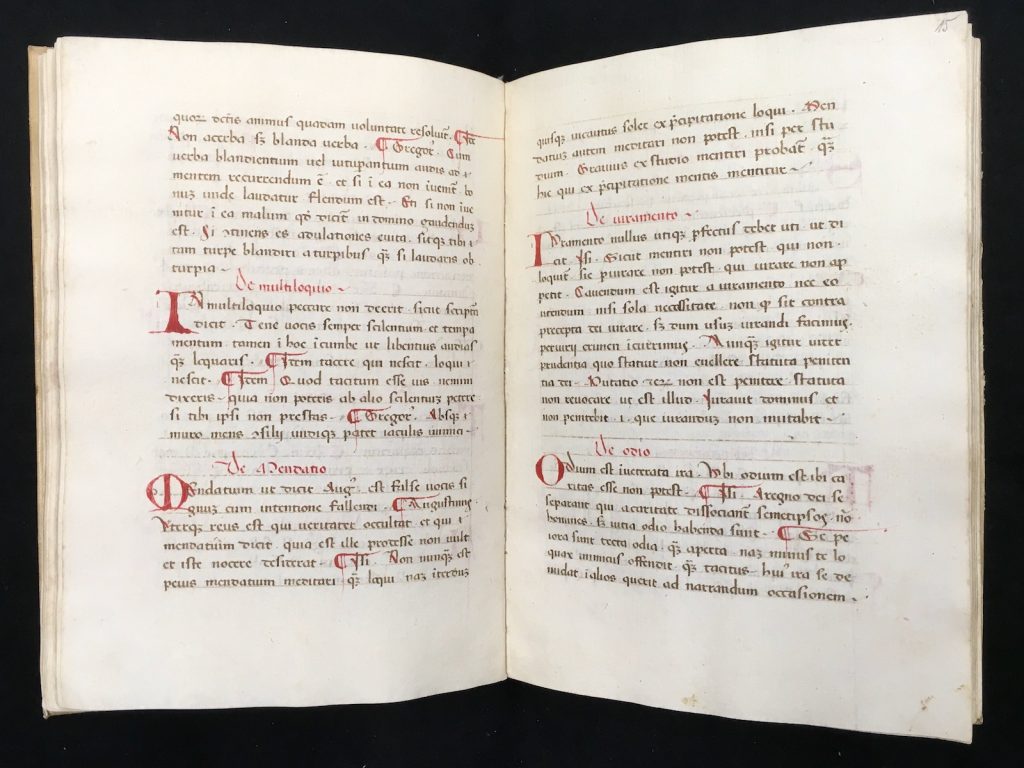 quor dictis animus quadam voluntate resoluit. Itē
Non acerba sꝫ blanda verba. Gregoꝰ. Cum
verba blandientium vel vitupantium audis ad
mentem recurrendum ē. et si ī ea non īuenit bo
nuꝫ unde laudatur flendum est. Et si non īue
nitur ī ea malum qđ dicit̄ in domino gaudenduꝫ
est. Si ↄtinens es adulationes euita. sitqꝫ tibi
tam turpe blandiri a turpibus qꝫ si laudaris ob
turpia.
De multiloquio
In multiloquio peccare non deerit. sicut scriptū
dicit. Tene vocis semper scilentum et tempa
mentum tamen ī hoc īcumbe ut libentius audias
qꝫ loquaris. Item tacere qui nescit. loqui
nescit. Item Quod tacitum esse vis nemini
dixeris. quia non poteris ab alio scilentuꝫ petere
si tibi ipsi non prestas. Gregoꝰ. Absqꝫ
muro mens ↄsilij undiqꝫ patet iaculis inimici
De Mendatio
Mendatium ut dicit Augꝰ. est false vocis si
gnuꝫ cum intentione fallendi. Augustinus
Uterque reus est qui veritatem occultat et qui
mendatium dicit. quia est ille prodesse non vult
et iste nocere desiderat. Isi. Non nunqꝫ est
peius mendatium meditari qꝫ loqui. naꝫ īterduꝫ
15
quisqꝫ incautus solet ex p̄cipitatione loqui. Men
datiuꝫ autem meditari non potest. nisi per stu
dium. Grauius ex studio mentiri probat̄. qꝫ
hic qui ex p̄cipitatione mentis mentitur
De iuramento
Iuramento nullus utiqꝫ pfectus debet uti. ut di
cit Isi. Sicut mentiri non potest qui non
loquit̄. sic piurare non potest. qui iurare non ap
petit. Cauendum est igitur a iuramento nec eo
utendum. nisi sola necessitate. non ꝙ sit contra
precepta dei iurare. sꝫ dum usuꝫ iurandi facimus.
periurij crimen īcurrimus. Nunqꝫ igitur iuret
prudentia quo statuit non euellere statuta peniten
tia dei. Mutatio non est penitere statuta
non reuocare ut est illud. Iurauit dominus et
non penitebit. i. que iurauduꝫ non mutabit.
De odio
Odium est inueterata ira. Ubi odium est ibi ca
ritas esse non potest. Isi. A regno dei se
separant qui a caritate dissociant semetipsos. nō
homines. sꝫ uitia odio habenda sunt. Se. pe
iora sunt tecta odia. qꝫ aperta. naꝫ minus te lo
quax inimicus offendit. qꝫ tacitus. huiꝰ ira se de
nudat. īalios querit ad narrandum occasionem.